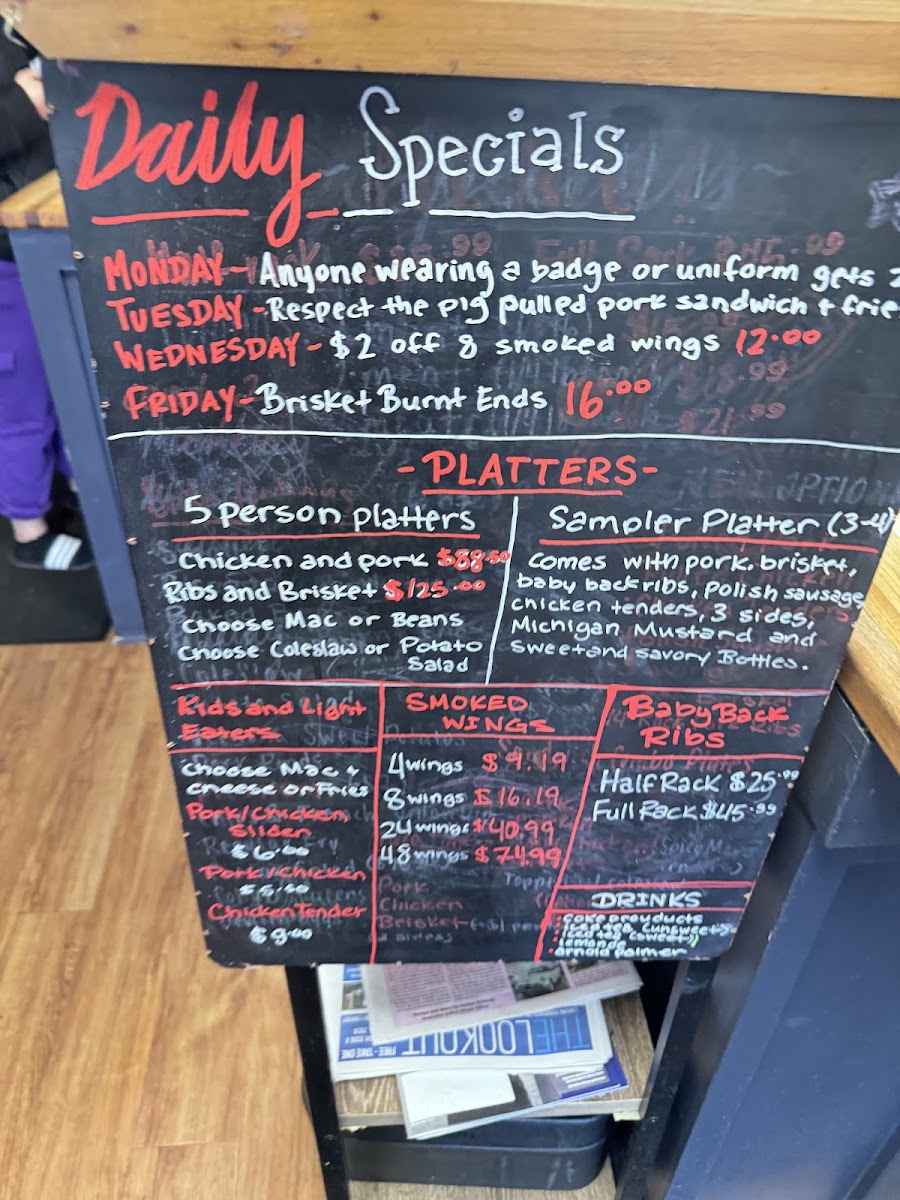 Daily Specials
MONDAY - Anyone wearing a badge or uniform gets 2
TUESDAY - Respect the pig pulled pork sandwich + frie
WEDNESDAY - $2 off 8 smoked wings 12.00
FRIDAY - Brisket Burnt Ends 16.00
- PLATTERS -
5 person platters
Chicken and pork $88.50
Ribs and Brisket $125.00
Choose Mac or Beans
Choose Coleslaw or Potato
Salad
Sampler Platter (3-4)
Comes with pork, brisket,
baby back ribs, polish sausage,
chicken tenders, 3 sides,
Michigan Mustard and
Sweet and Savory Bottles.
Kids and Light
Eaters
Choose Mac +
cheese or Fries
Pork/Chicken
Slider
$6.00
Pork/Chicken
Chicken Tender
$9.00
SMOKED
WINGS
4 wings $9.19
8 wings $16.19
24 wings $40.99
48 wings $74.99
Pork
Chicken
Brisket
Baby Back
Ribs
Half Rack $25.99
Full Rack $45.99
DRINKS
• coke prouducts
• iced tea (unsweet)
• iced tea (sweet)
• lemonde
• arnold palmer
THE LOOKOUT
FREE • TAKE ONE